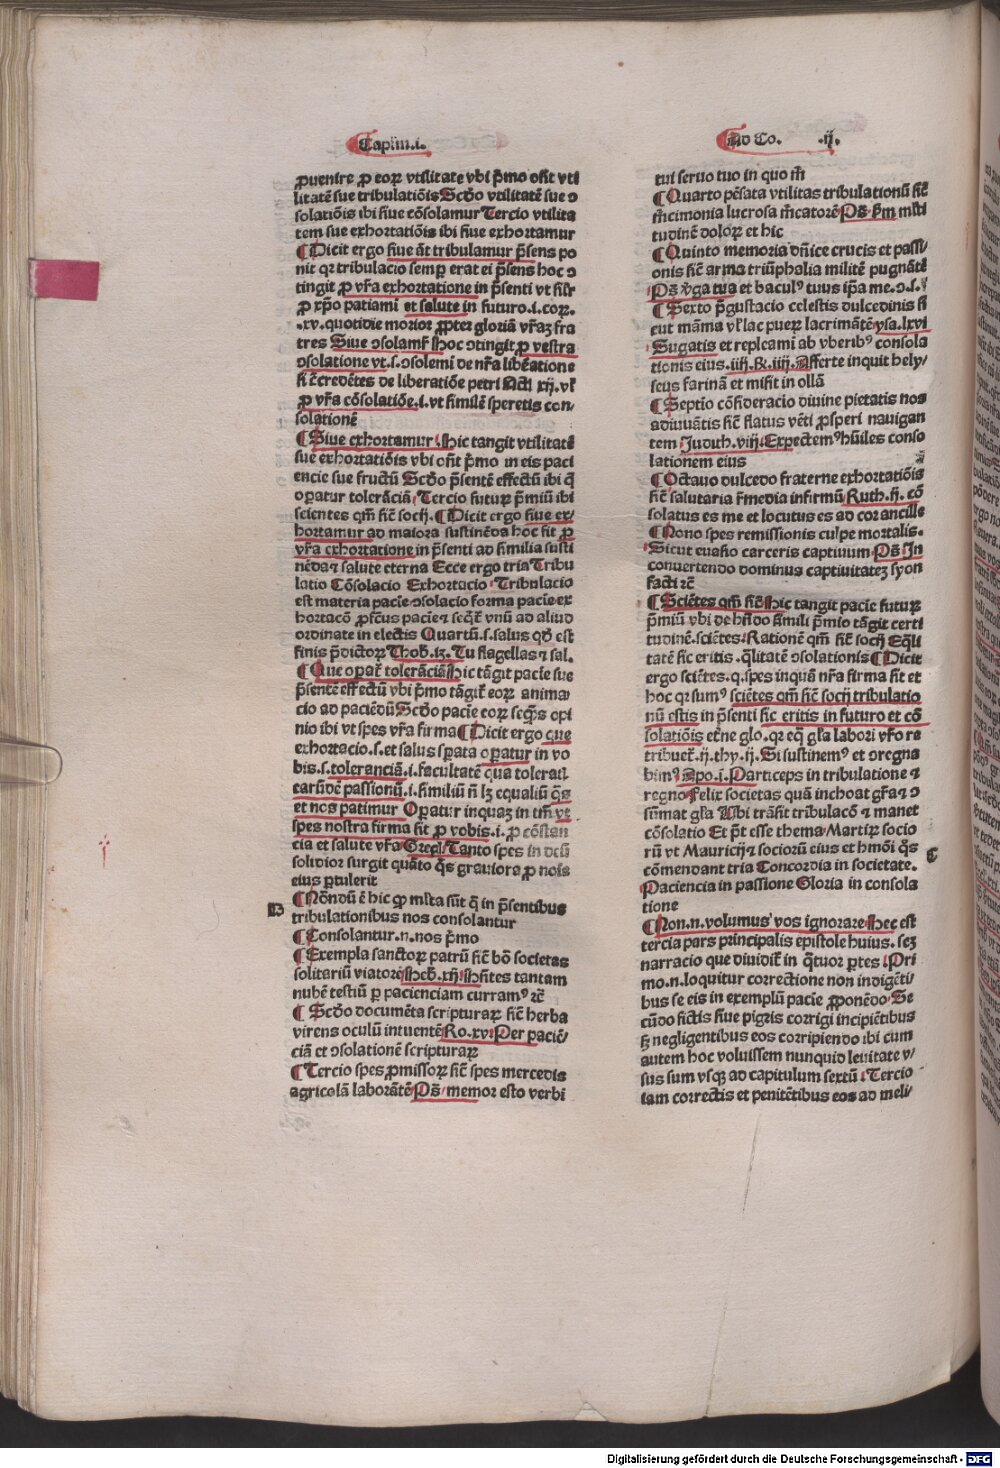 Capĺm.i.
ꝓuenire ꝓ eoꝝ vtilitate vbi p̄mo oñt vti
litatē sue tribulatiōis Scďo vtilitatē sue ↄ
solatiōis ibi siue cōsolamur Tercio vtilita
tem sue exhortatiōis ibi siue exhortamur
¶ Dicit ergo siue āt tribulamur p̄sens po
nit qꝛ tribulacio semꝑ erat ei p̄sens hoc ↄ
tingit ꝓ vr̄a exhortatione in p̄senti vt silr̄
ꝓ xp̄o patiami et salute in futuro.i.coꝝ.
.xv.quotidie morior ꝓpter gloriā vr̄aꝫ fra
tres Siue ↄsolamr̄ Hoc ↄtingit ꝓ vestra
ↄsolatione vt.s.ↄsolemi de nr̄a liberatione
si c̄ credētes de liberatiōe petri Act. xij. vl̕
ꝓ vr̄a cōsolatiōe.i.vt similē speretis con/
solationē
¶ Siue exhortamur. Hic tangit vtilitatē
sue exhortatiōis vbi oñt p̄mo in eis paci
encie sue fructū Scďo p̄sentē effectū ibi q̄
operatur tolerāciā Tercio futuꝝ p̄miū ibi
scientes qm̄ sic̄ socij. ¶ Dicit ergo siue ex/
hortamur ad maiora sustinēda hoc sit ꝓ
vr̄a exhortatione in p̄senti ad similia susti
nēda ⁊ salute eterna Ecce ergo tria Tribu
latio Cōsolacio Exhortacio Tribulacio
est materia pacie ↄsolacio forma pacie ex
hortacō ꝓfectus pacie ⁊ seq̄t̄ vnū ad aliud
ordinate in electis Quartū.s.salus qď est
finis p̄dictoꝝ Thob.iꝫ. Tu flagellas ⁊ sal.
¶ Que opat̄ tolerāciā Hic tāgit pacie sue
p̄sentē effectū vbi p̄mo tāgit̄ eoꝝ anima
cio ad paciēdū Scďo pacie eoꝝ seq̄ns opi
nio ibi vt spes vr̄a firma ¶ Dicit ergo que
exhortacio.s.et salus sꝑata operatur in vo
bis.s.toleranciā.i.facultatē qua toleratis
earūdē passionū.i.similiū n̄ lꝫ equaliū q̄s
et nos patimur Operatur inquaꝫ in tm̄ vt
spes nostra firma sit ꝓ vobis.i.ꝓ cōstan
cia et salute vr̄a Greg. Tanto spes in deū
solidior surgit quāto q̄s grauiora ꝓ nois
eius ꝑtulerit
¶ Nōndū ē hic ꝙ ml̕ta sūt q̄ in p̄sentibus
B
tribulationibus nos consolantur
¶ Consolantur.n.nos p̄mo
¶ Exempla sanctoꝝ patrū sic̄ bō societas
solitariū viatorē Heb.xij. Hn̄tes tantam
nubē testiū ꝑ pacienciam curram⁹ ꝛc̄
¶ Scďo documēta scripturaꝝ sic̄ herba
virens oculū intuentē Ro.xv. Per paciē/
ciā et ↄsolationē scripturaꝝ
¶ Tercio spes ꝓmissoꝝ sic̄ spes mercedis
agricolā laborātē Ps̄. memor esto verbi
Ad Co. .ij.
tui seruo tuo in quo m̄
¶ Quarto pēsata vtilitas tribulationū sic̄
m̄cimonia lucrosa m̄catorē Ps̄. s̄m ml̕ti
tudinē doloꝝ et hic
¶ Quinto memoria dn̄ice crucis et passi/
onis sic̄ arma triūphalia militē pugnātē
Ps̄. v̄ga tua et bacul⁹ tuus ip̄a me.ↄ.s.
¶ Sexto p̄gustacio celestis dulcedinis si
cut māma vl̕ lac pueꝝ lacrimātē ysa.lxvi
Sugatis et repleami ab vberib⁹ consola
tionis eius.iiij.R.iiij. Afferte inquit hely/
seus farinā et misit in ollā
¶ Septīo cōsideracio diuine pietatis nos
adiuuātis sic̄ flatus vēti ꝓsperi nauigan
tem Judith.viij. Expectem⁹ hūiles conso
lationem eius
¶ Octauo dulcedo fraterne exhortatiōis
sic̄ salutaria r̄media infirmū Ruth.ij. cō
solatus es me et locutus es ad cor ancille
¶ Nono spes remissionis culpe mortalis.
Sicut euasio carceris captiuum Ps̄. In
conuertendo dominus captiuitateꝫ syon
facti ꝛc̄
¶ Sciētes qm̄ sic̄ Hic tangit pacie futuꝝ
p̄miū vbi de hn̄do simili p̄mio tāgit certi
tudinē.sciētes. Rationē qm̄ sic̄ socij Eq̄li
tatē sic eritis.q̄litatē ↄsolationis ¶ Dicit
ergo sciētes.q.spes inquā nr̄a firma sit et
hoc qꝛ sum⁹ sciētes qm̄ sic̄ socij tribulatio
nū estis in p̄senti sic eritis in futuro et cō
solatiōis et̄ne glo.qꝛ eq̄ gl̕a labori vr̄o re
tribuet̄.ij.thy.ij. Si sustinem⁹ et ↄregna
bim⁹ Apo.i. Particeps in tribulatione ⁊
regno Felix societas quā inchoat gr̄a ⁊ ↄ
sūmat gl̕a Ubi trāsit tribulacō ⁊ manet
cōsolatio Et p̄t esse thema Martiꝝ socio
rū vt Mauricij ⁊ sociorū eius et hmōi q̄s
C
cōmendant tria Concordia in societate.
Paciencia in passione Gloria in consola
tione
¶ Non.n.volumus vos ignorare Hec est
tercia pars principalis epistole huius.seꝫ
narracio que diuidit̄ in q̄tuor ꝑtes Pri
mo.n.loquitur correctione non indigēti
bus se eis in exemplū pacie ꝓponēdo Se
cūdo fictis siue pigris corrigi incipiētibus
sꝫ negligentibus eos corripiendo ibi cum
autem hoc voluissem nunquid leuitate v/
sus sum vsqꝫ ad capitulum sextū Tercio
iam correctis et penitētibus eos ad meli/
Digitalisierung gefördert durch die Deutsche Forschungsgemeinschaft - DFG